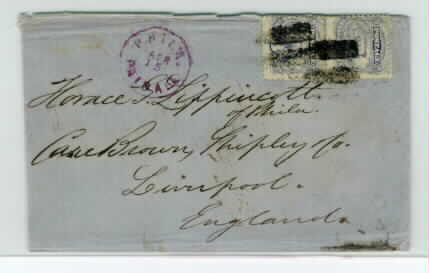 PHILA.
PAID ALL
Horace J. Lippincott
of Phila.
Care Brown, Shipley & Co.
Liverpool.
England.